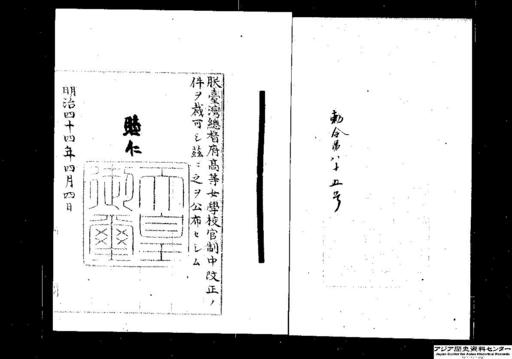 勅令第八十五号
朕臺灣總督府高等女學校官制中改正ノ
件ヲ裁可シ茲ニ之ヲ公布セシム
睦仁
天皇
御璽
明治四十四年四月四日
アジア歴史資料センター
Japan Center for Asian Historical Records